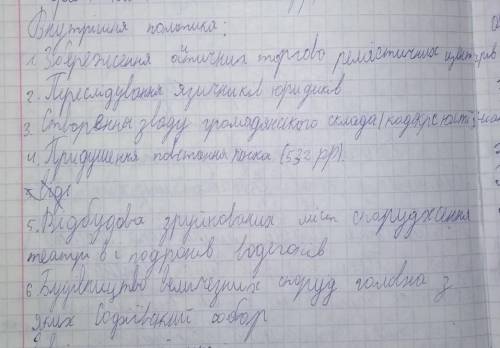 Внутришня политика:
1. Збереження античних торгово ремістичних центрів
2. Переслідування язичників юридиків
3. Створення зводу громадянского склада (кодекс юстініана
4. Придушення повстання Ніка (532 рр).
5. Відбудова зруйнованих міст спорудження
театрів і водогонів
6 Будівництво величезних споруд головна з
яких Софієвский собор